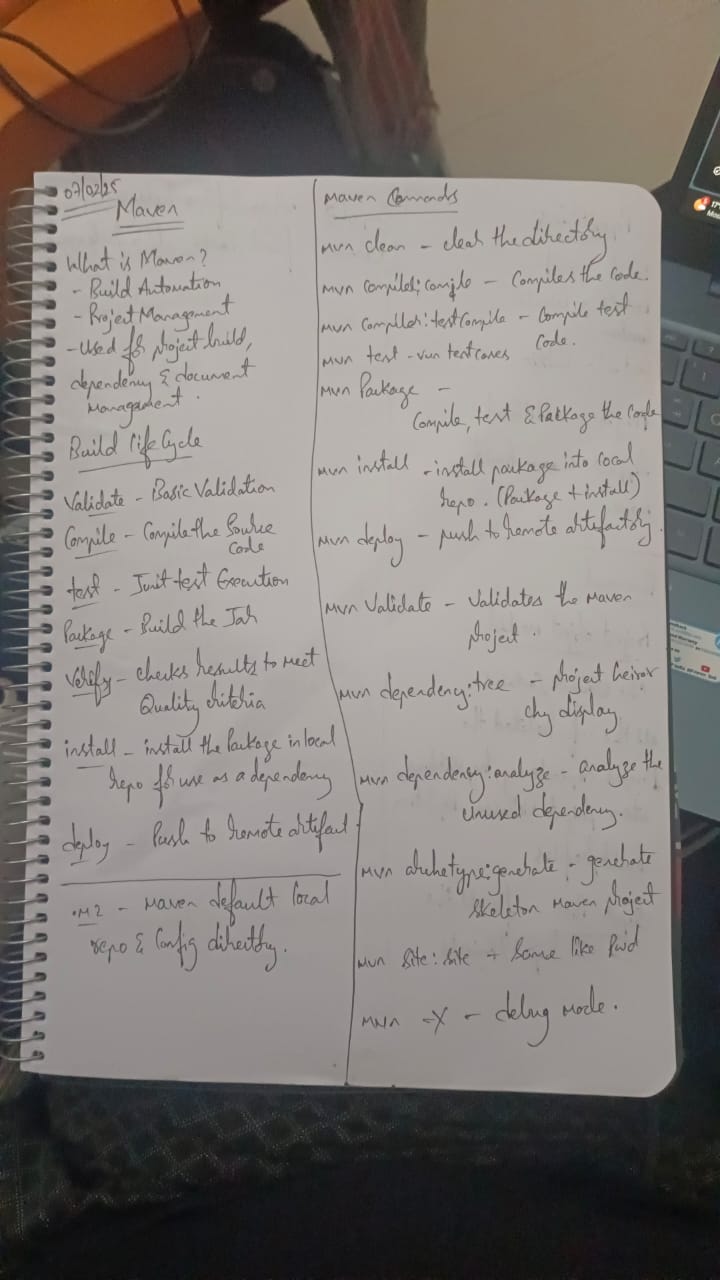 07/02/25
Maven
What is Maven?
- Build Automation
- Project Management
- Used for project build,
dependency & document
Management.
Build life Cycle
Validate - Basic Validation
Compile - Compile the Source
Code
test - Junit test Execution
Package - Build the Jar
Verify - checks results to meet
Quality criteria
install - install the Package in local
repo for use as a dependency
deploy - Push to remote artifact
.M2 - Maven default local
repo & Config directory.
Maven Commands
mvn clean - clear the directory
mvn compiler:compile - Compiles the code.
mvn compiler:testCompile - Compile test
Code.
mvn test - run testcases
mvn Package -
Compile, test & Package the Code
mvn install - install package into local
repo. (Package + install)
mvn deploy - push to remote artifactory.
mvn Validate - Validates the Maven
project.
mvn dependeny:tree - project heirar
chy display
mvn dependency:analyze - analyze the
Unused dependency.
mvn archetype:generate - generate
Skeleton Maven project
mvn Site:site - Same like Pwd
mvn -X - debug mode.